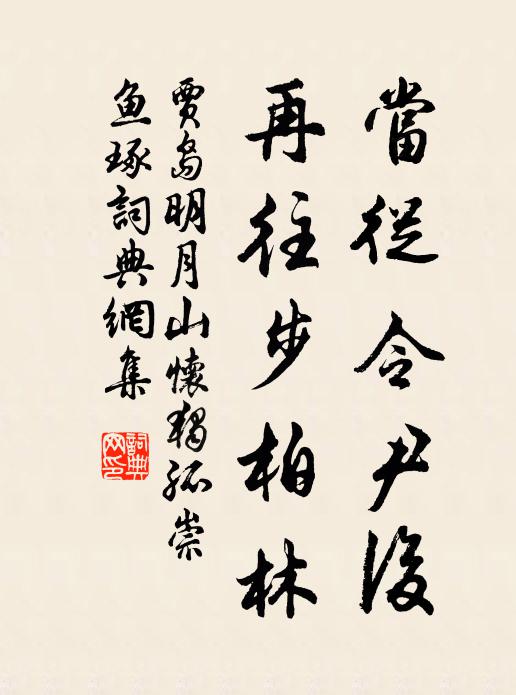 當從令尹後
再往步柏林
賈島明月山懷獨孤崇
鱼琢詞典網集
詞典
网印